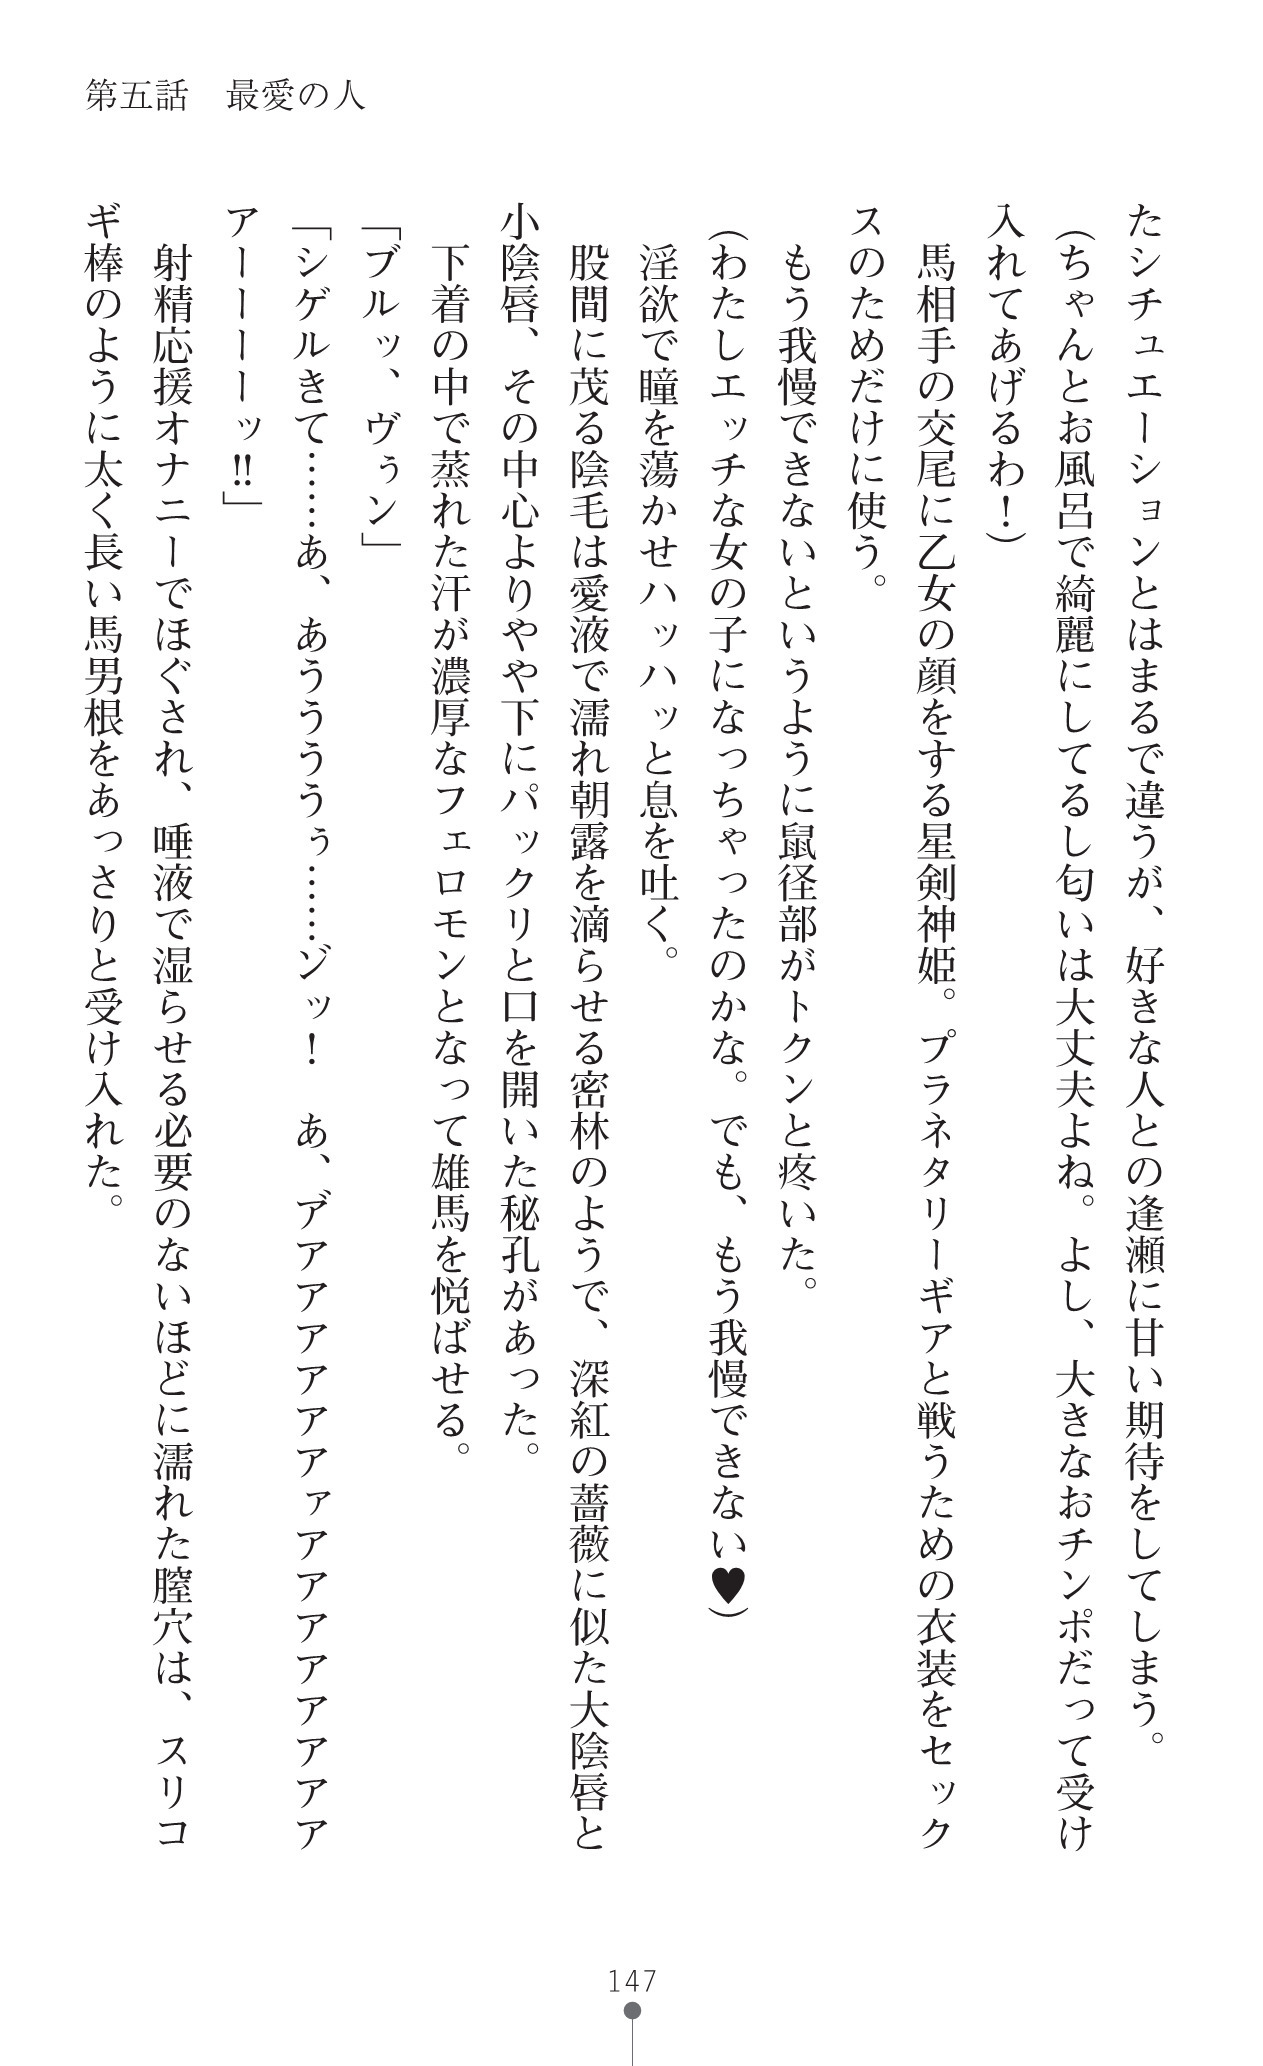 第五話　最愛の人
たシチュエーションとはまるで違うが、好きな人との逢瀬に甘い期待をしてしまう。
（ちゃんとお風呂で綺麗にしてるし匂いは大丈夫よね。よし、大きなおチンポだって受け
入れてあげるわ！）
　馬相手の交尾に乙女の顔をする星剣神姫。プラネタリーギアと戦うための衣装をセック
スのためだけに使う。
　もう我慢できないというように鼠径部がトクンと疼いた。
（わたしエッチな女の子になっちゃったのかな。でも、もう我慢できない♥）
　淫欲で瞳を蕩かせハッハッと息を吐く。
　股間に茂る陰毛は愛液で濡れ朝露を滴らせる密林のようで、深紅の薔薇に似た大陰唇と
小陰唇、その中心よりやや下にパックリと口を開いた秘孔があった。
　下着の中で蒸れた汗が濃厚なフェロモンとなって雄馬を悦ばせる。
「ブルッ、ヴぅン」
「シゲルきて……あ、あううううぅ……ゾッ！　あ、ア゛アアアアアアァアアアアアアアア
アーーーーッ‼」
　射精応援オナニーでほぐされ、唾液で湿らせる必要のないほどに濡れた膣穴は、スリコ
ギ棒のように太く長い馬男根をあっさりと受け入れた。
147